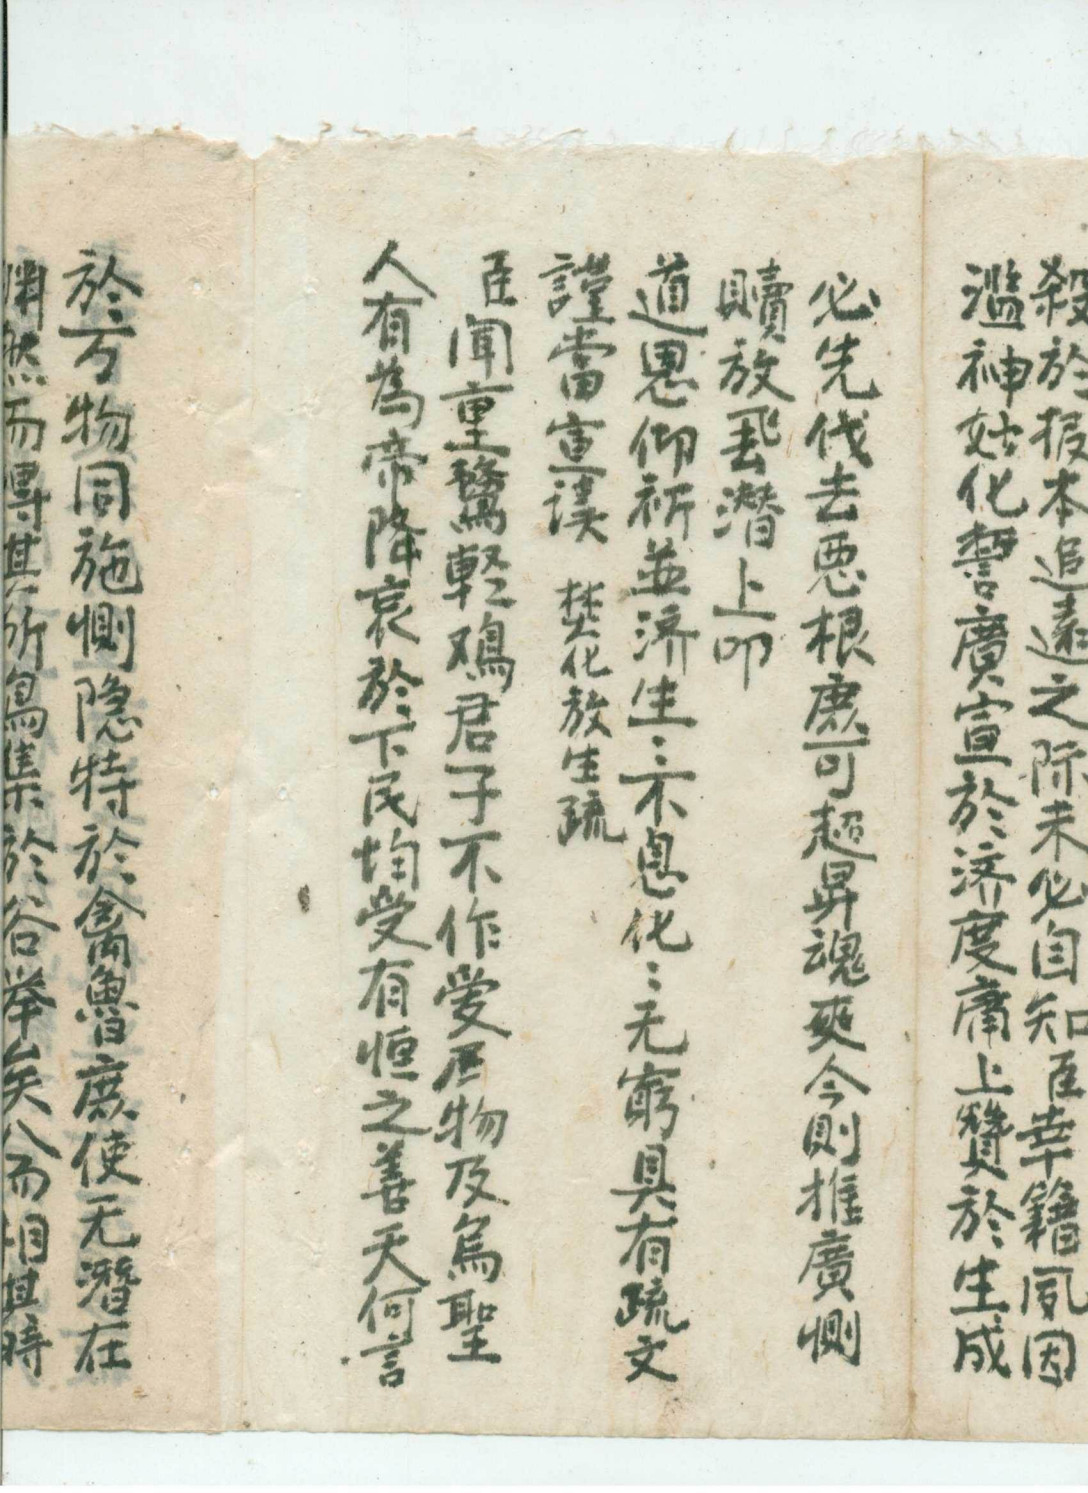 殺於报本追遠之际未必自知臣幸籍夙因
滥神姑化誓廣宣於济度庸上赞於生成
必先伐去恶根庶可超昇魂爽今則推廣惻
贖放飛潛上叩
道恩仰祈並济生〻不息化〻无窮具有疏文
謹當宣讀 焚化放生疏
臣聞重鶩軽鳮君子不作爱居物及烏聖
人有為帝降衷於下民均受有恒之善天何言
於万物同施惻隐特於禽魯庶使无潛在
渊然而得其所鳥集於谷举矣人而相其時